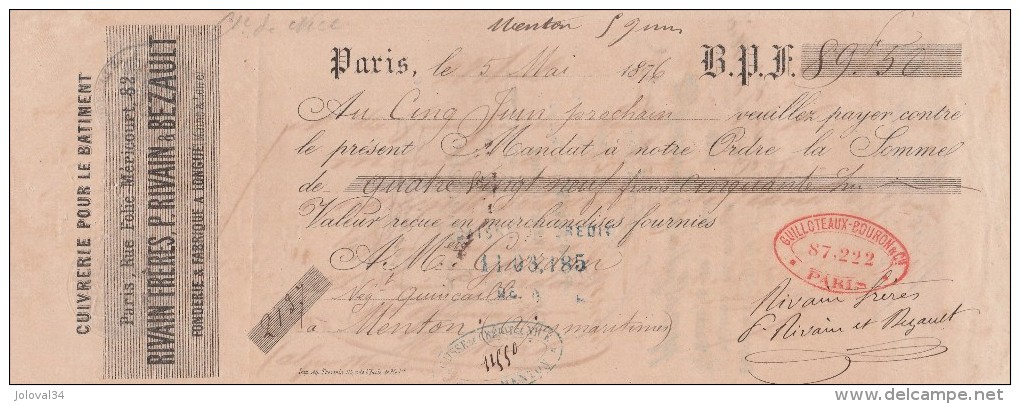 CUIVRERIE POUR LE BATIMENT
Paris, Rue Folie Méricourt, 82
RIVAIN FRERES, P. RIVAIN & BEZAULT
FONDERIE & FABRIQUE A LONGUÉ (Maine & Loire)
Menton 5 Juin
Paris, le 5 Mai 1876 B.P.F. 89f 50
Au Cinq Juin prochain veuillez payer contre
le présent Mandat à notre Ordre la Somme
de quatre vingt neuf francs cinquante
Valeur reçue en marchandises fournies
CREDIT
A M.
11.03.185
Negt Quincaillier
à Menton (maritimes)
2187
MENTON
GUILLOTEAUX-BOURON & Cie
87.222
PARIS
Rivain frères
P. Rivain et Bezault
joloval34
delcampe.net